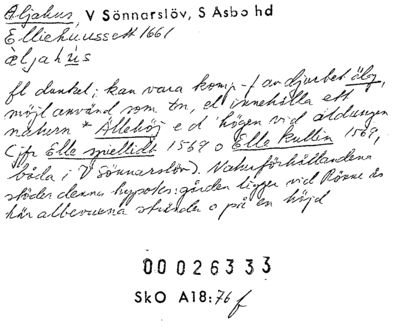 Äljahus, V Sönnarslöv, S Åsbo hd
Elliehuussett 1661
äljahús
fl dunkel; kan vara komp-f av djurbet älg,
möjl använd som tn, el innehålla ett
naturn * Ällehöj e d 'högen vid åldungen
(jfr Elle spielltidt 1569 o Elle kullin 1569,
båda i V Sönnarslöv). Naturförhållandena
stöder denna hypotes: gården ligger vid Rönne ås
här albevuxna stränder o på en höjd
00026333
SkO A18:76 f